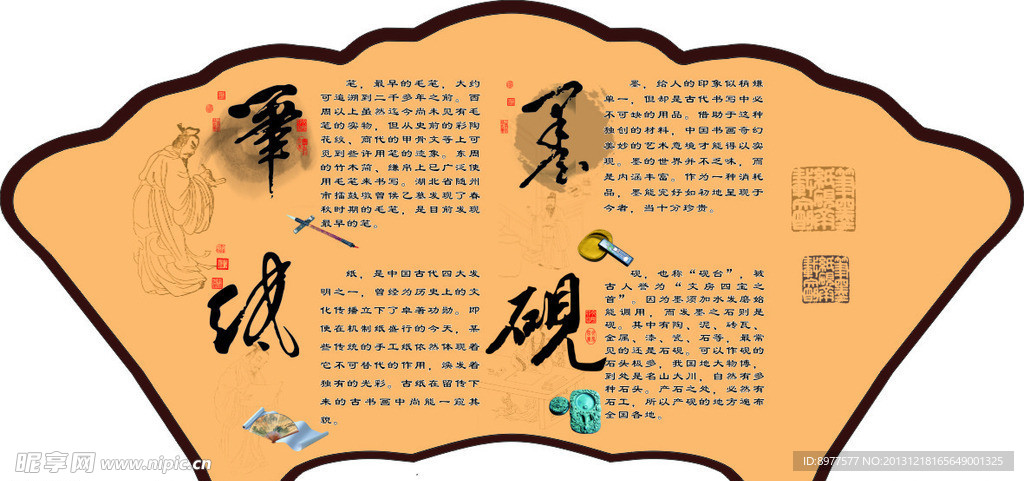 筆
笔，最早的毛笔，大约
可追溯到二千多年之前。西
周以上虽然迄今尚未见有毛
笔的实物，但从史前的彩陶
花纹、商代的甲骨文等上可
见到些许用笔的迹象。东周
的竹木简、缣帛上已广泛使
用毛笔来书写。湖北省随州
市擂鼓墩曾侯乙墓发现了春
秋时期的毛笔，是目前发现
最早的笔。
墨
墨，给人的印象似稍嫌
单一，但却是古代书写中必
不可缺的用品。借助于这种
独创的材料，中国书画奇幻
美妙的艺术意境才能得以实
现。墨的世界并不乏味，而
是内涵丰富。作为一种消耗
品，墨能完好如初地呈现于
今者，当十分珍贵。
纸
纸，是中国古代四大发
明之一，曾经为历史上的文
化传播立下了卓著功勋。即
使在机制纸盛行的今天，某
些传统的手工纸依然体现着
它不可替代的作用，焕发着
独有的光彩。古纸在留传下
来的古书画中尚能一窥其
貌。
硯
砚，也称“砚台”，被
古人誉为“文房四宝之
首”。因为墨须加水发磨始
能调用，而发墨之石则是
砚。其中有陶、泥、砖瓦、
金属、漆、瓷、石等，最常
见的还是石砚。可以作砚的
石头极多，我国地大物博，
到处是名山大川，自然有多
种石头。产石之处，必然有
石工，所以产砚的地方遍布
全国各地。
昵享网 www.nipic.cn
ID:8977577 NO:20131218165649001325